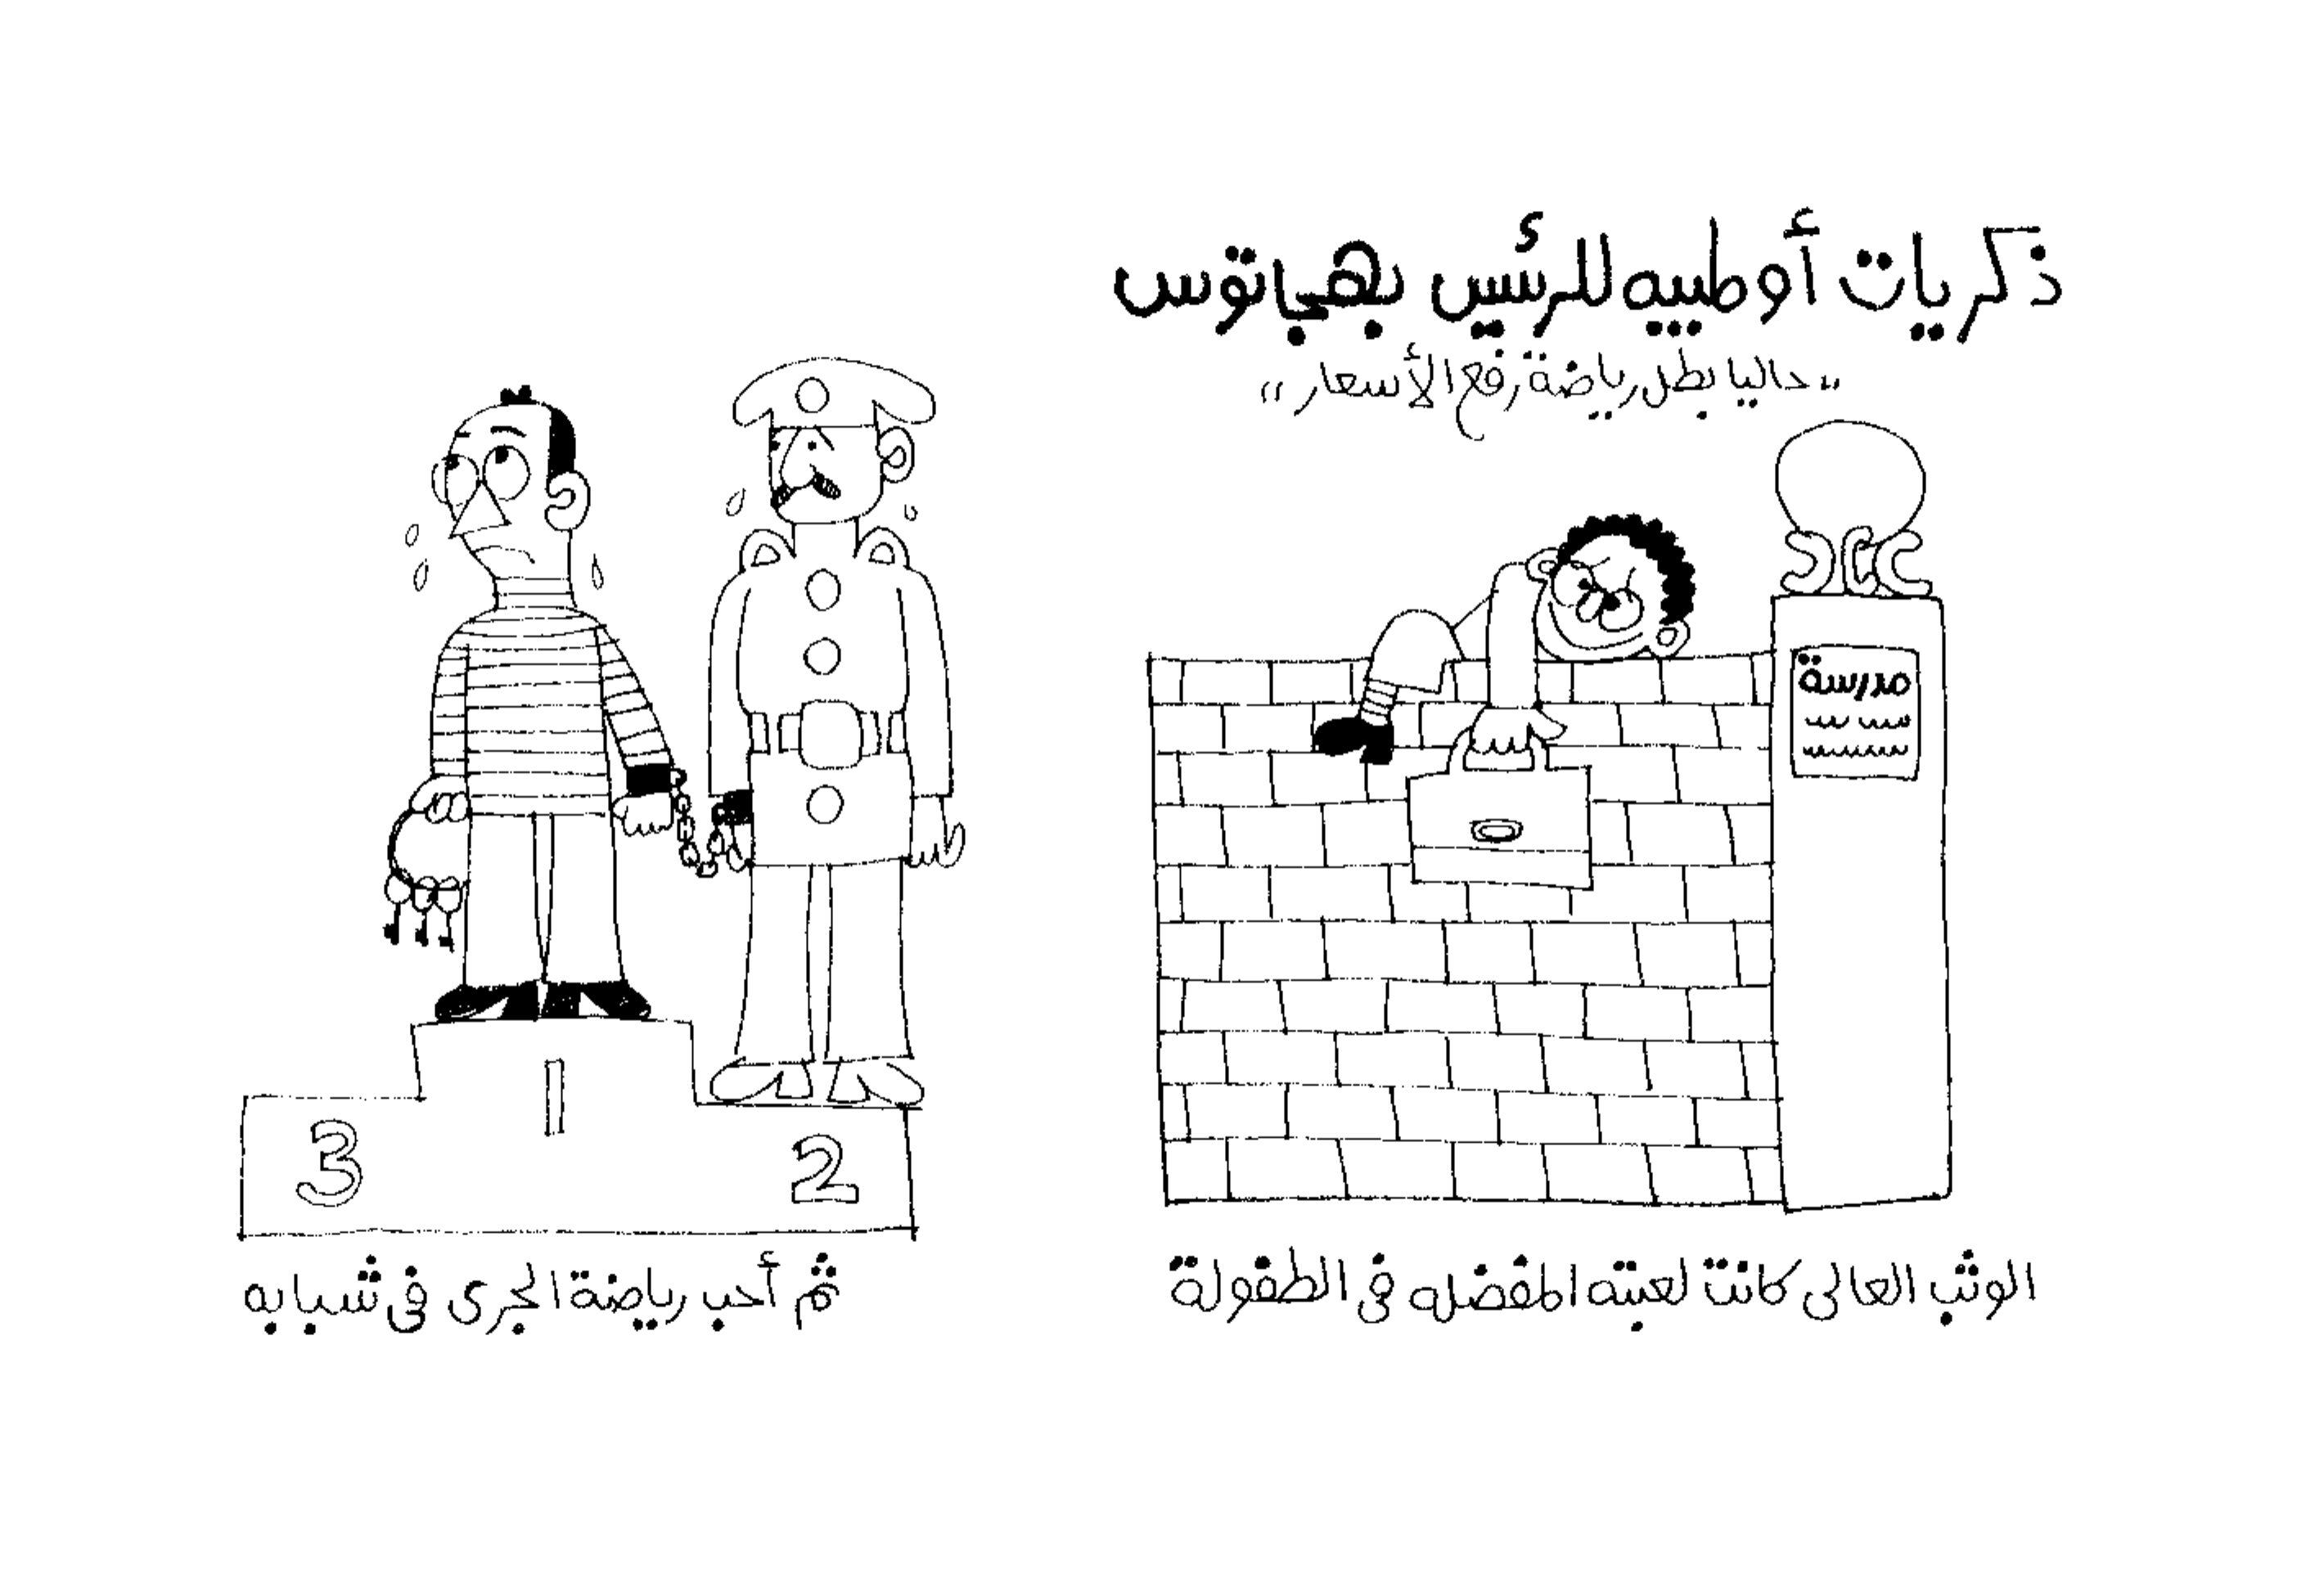 ذكريات أوطبيه للرئيس بهجاتوس
"حاليا بطل رياضة رفع الأسعار"
مدرسة
الوثب العالى كانت لعبته المفضله فى الطفولة
ثم أحب رياضة الجرى فى شبابه
3
1
2